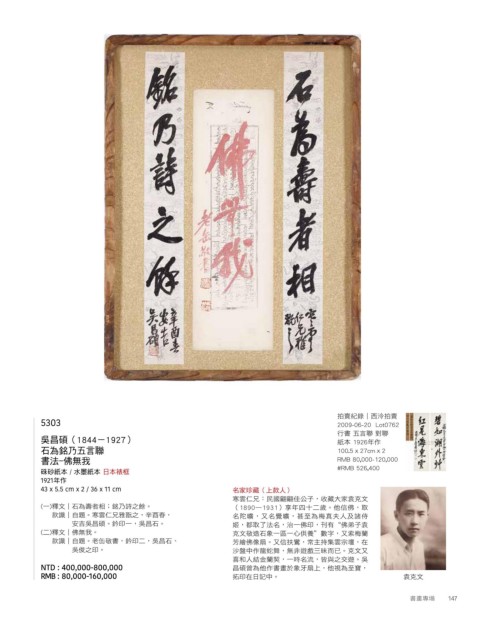 石為壽者相
銘乃詩之餘
佛無我
5303
吳昌碩（1844－1927）
石為銘乃五言聯
書法-佛無我
硃砂紙本 / 水墨紙本 日本裱框
1921年作
43 x 5.5 cm x 2 / 36 x 11 cm
(一)釋文｜石為壽者相；銘乃詩之餘。
款識｜自題。寒雲仁兄雅甑之。辛酉春，
安吉吳昌碩。鈐印一，吳昌石。
(二)釋文｜佛無我。
款識｜自題。老缶敬書，鈐印二，吳昌石、
吳俊之印。
NTD : 400,000-800,000
RMB : 80,000-160,000
拍賣紀錄｜西泠拍賣
2009-06-20 Lot0762
行書 五言聯 對聯
紙本 1926年作
100.5 x 27cm x 2
RMB 80,000-120,000
#RMB 526,400
名家珍藏（上款人）
寒雲仁兄：民國翩翩佳公子，收藏大家袁克文
（1890－1931）享年四十二歲。他信佛，取
名陀曠，又名覺曠，甚至為梅真夫人及諸侍
姬，都取了法名，治一佛印，刊有“佛弟子袁
克文敬造石象一區一心供養”數字，又索梅蘭
芳繪佛像扇。又信扶鸞，常主持集雲宗壇，在
沙盤中作龍蛇舞，無非遊戲三昧而已。克文又
喜和人結金蘭契，一時名流，皆與之交遊。吳
昌碩曾為他作書畫於象牙扇上，他視為至寶，
拓印在日記中。
袁克文
書畫專場 147